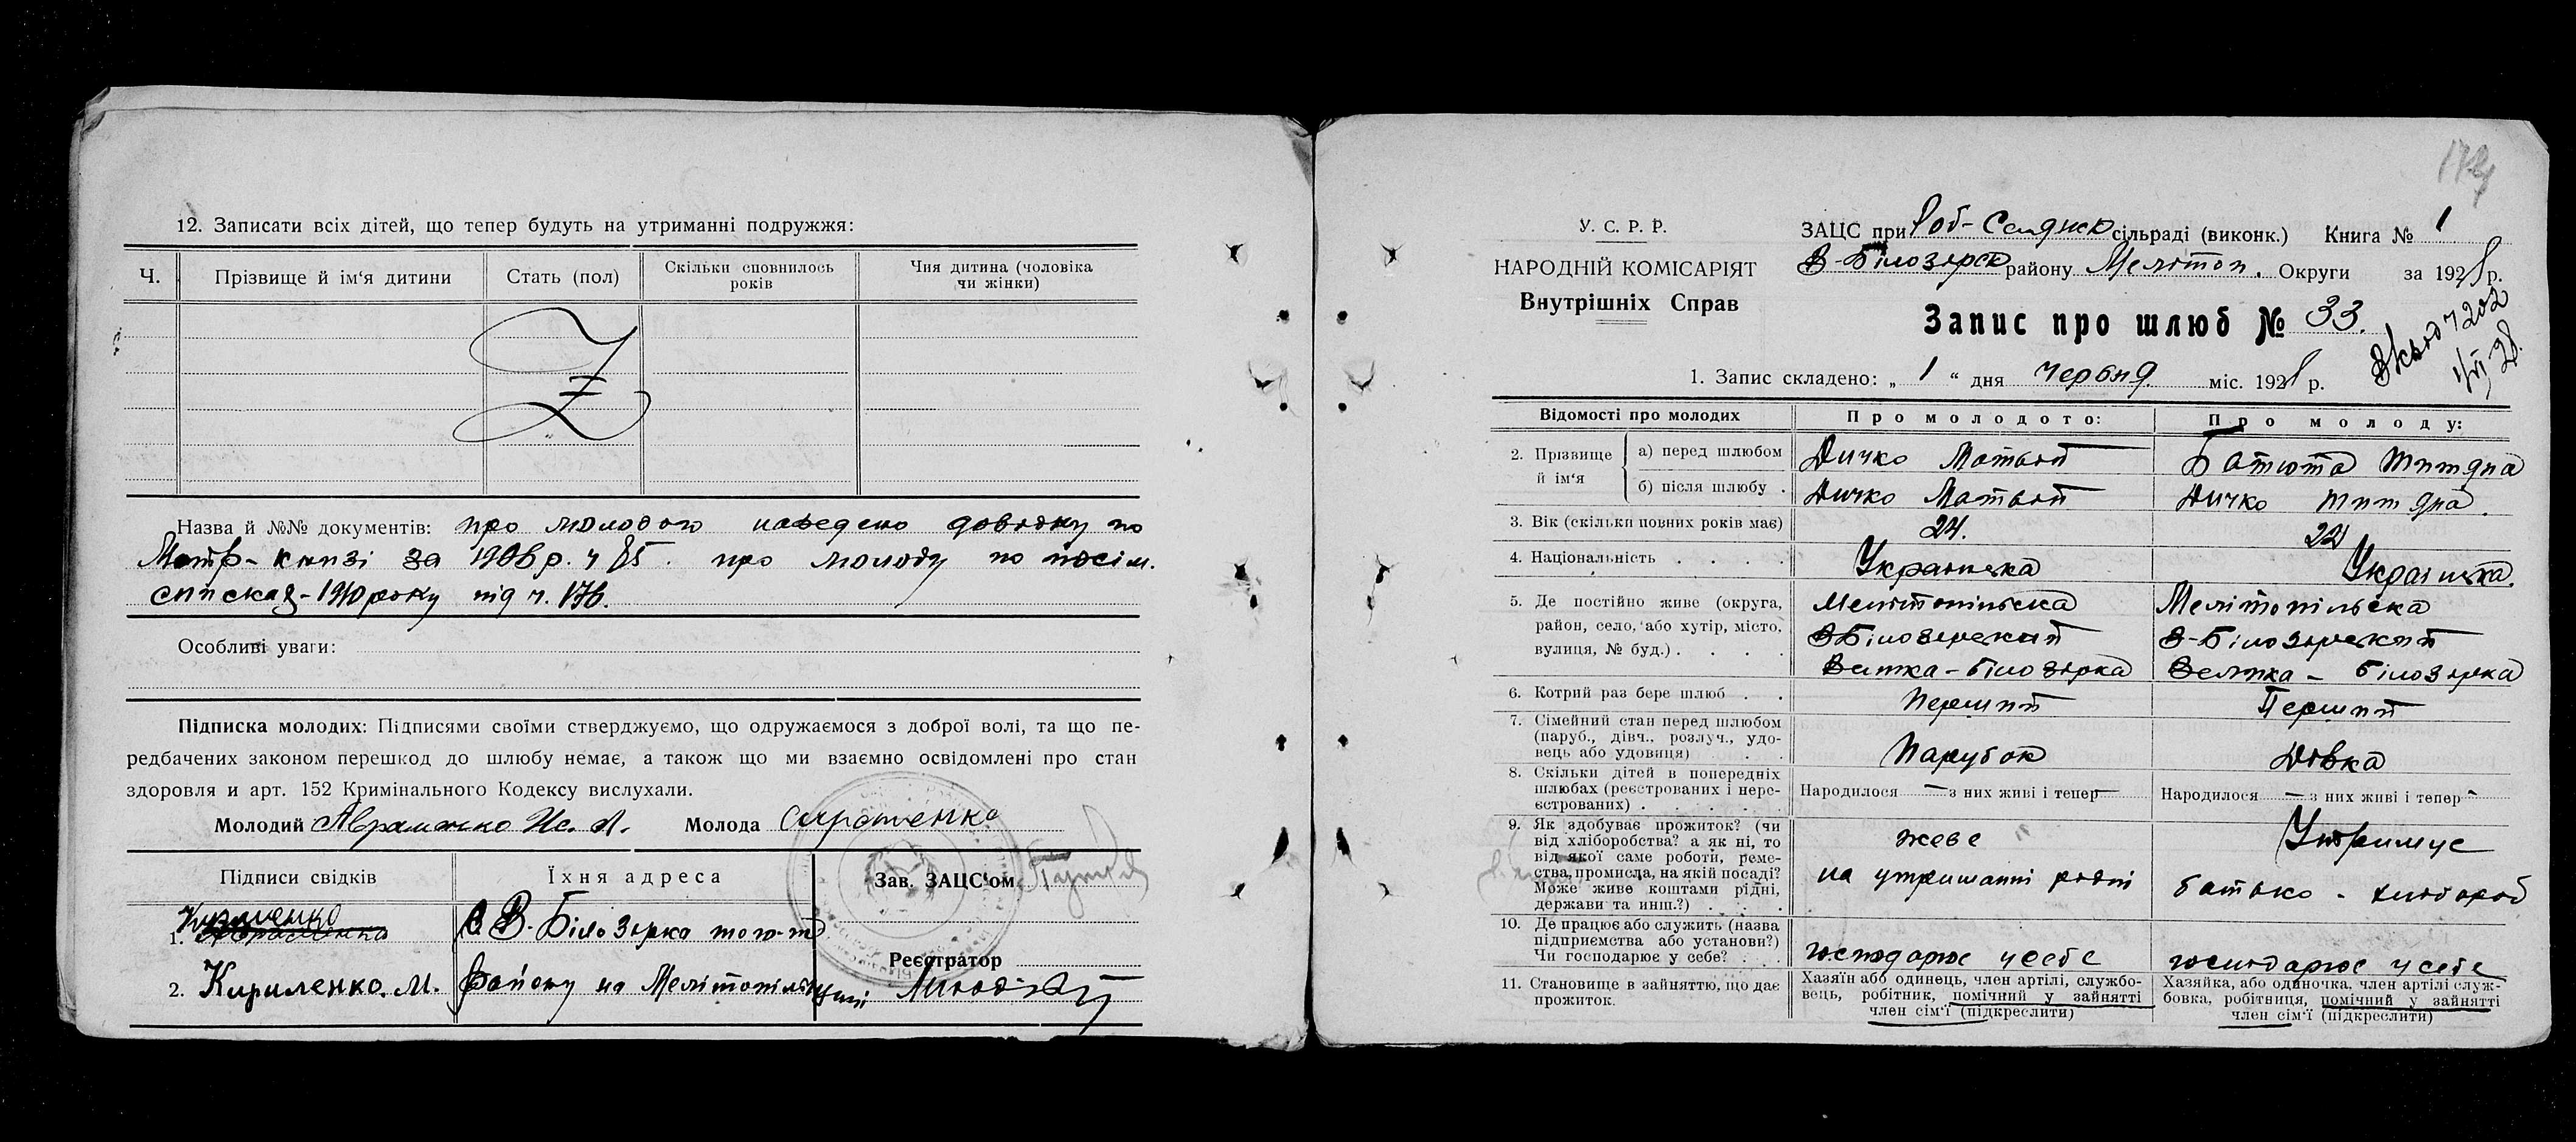 12. Записати всіх дітей, що тепер будуть на утриманні подружжя:
Ч. Прізвище й ім‘я дитини Стать (пол) Скільки сповнилось років Чия дитина (чоловіка чи жінки)
Z
Назва й №№ документів: про молодого наведено довідку по
Метр-книзі за 190 р. ч 85. про молоду по посім.
списках-1910 року під ч. 176.
Особливі уваги:
Підписка молодих: Підписями своїми стверджуємо, що одружаємося з доброї волі, та що пе-
редбачених законом перешкод до шлюбу немає, а також що ми взаємно освідомлені про стан
здоровля и арт. 152 Кримінального Кодексу вислухали.
Молодий Авраменко Молода
Підписи свідків Їхня адреса Зав. ЗАЦС‘ом
1. Кузьменко В-Білозірка того-ж
2. Кириленко. М. Району на Мелітопільщині
Реєстратор
17
У. С. Р. Р.
НАРОДНІЙ КОМІСАРІЯТ
Внутрішніх Справ
ЗАЦС при сільраді (виконк.) Книга № 1
В-Білозірск району Мелітоп. Округи за 1928 р.
Запис про шлюб № 33.
1. Запис складено: „ 1 “ дня червня міс. 1928 р.
Відомості про молодих Про молодого: Про молоду:
2. Прізвище й ім‘я
а) перед шлюбом Дичко Матвій Батюта
б) після шлюбу . Дичко Матвій Дичко
3. Вік (скільки повних років має) 24. 22
4. Національність . . . . Українська Українська.
5. Де постійно живе (округа, Мелітопільська Мелітопільська
район, село, або хутір, місто, В-Білозірський В-Білозірський
вулиця, № буд.) . . . . Велика-Білозірка Велика-Білозірка
6. Котрий раз бере шлюб . . Перший Перший
7. Сімейний стан перед шлюбом
(паруб., дівч., розлуч., удо-
вець або удовиця) Парубок Дівка
8. Скільки дітей в попередніх
шлюбах (реєстрованих і нере-
єстрованих) . Народилося — з них живі і тепер — Народилося — з них живі і тепер -
9. Як здобуває прожиток? (чи
від хліборобства? а як ні, то
від якої саме роботи, реме-
ства, промисла, на якій посаді?
Може живе коштами рідні,
держави та инш.?) . . .
живе
на утриманні рідні
Утримує
батько - хлібороб
10. Де працює або служить (назва
підприємства або установи?)
Чи господарює у себе? . . господарює у себе господарює у себе
11. Становище в зайняттю, що дає
прожиток.
Хазяїн або одинець, член артілі, службо-
вець, робітник, помічний у зайнятті
член сім‘ї (підкреслити)
Хазяйка, або одиночка, член артілі служ-
бовка, робітниця, помічний у зайнятті
член сім‘ї (підкреслити)